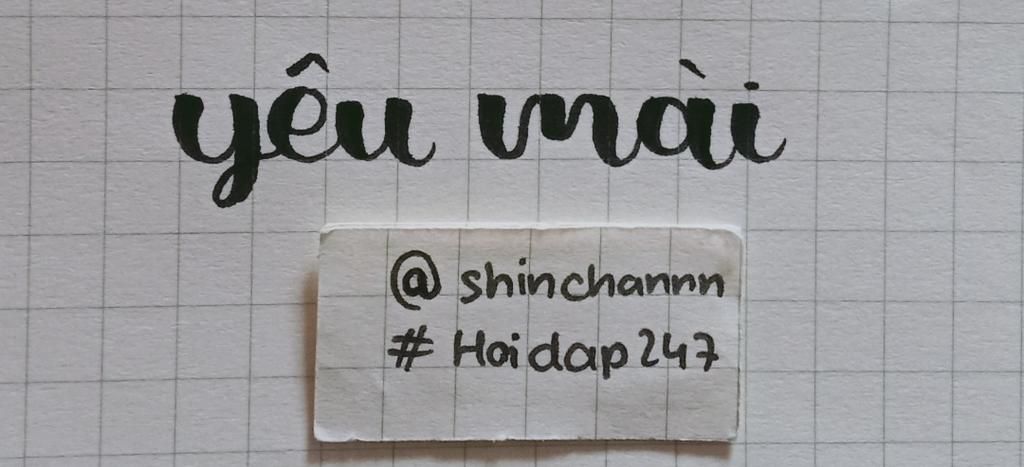 yêu mài
@ shinchannn
# Hoidap247